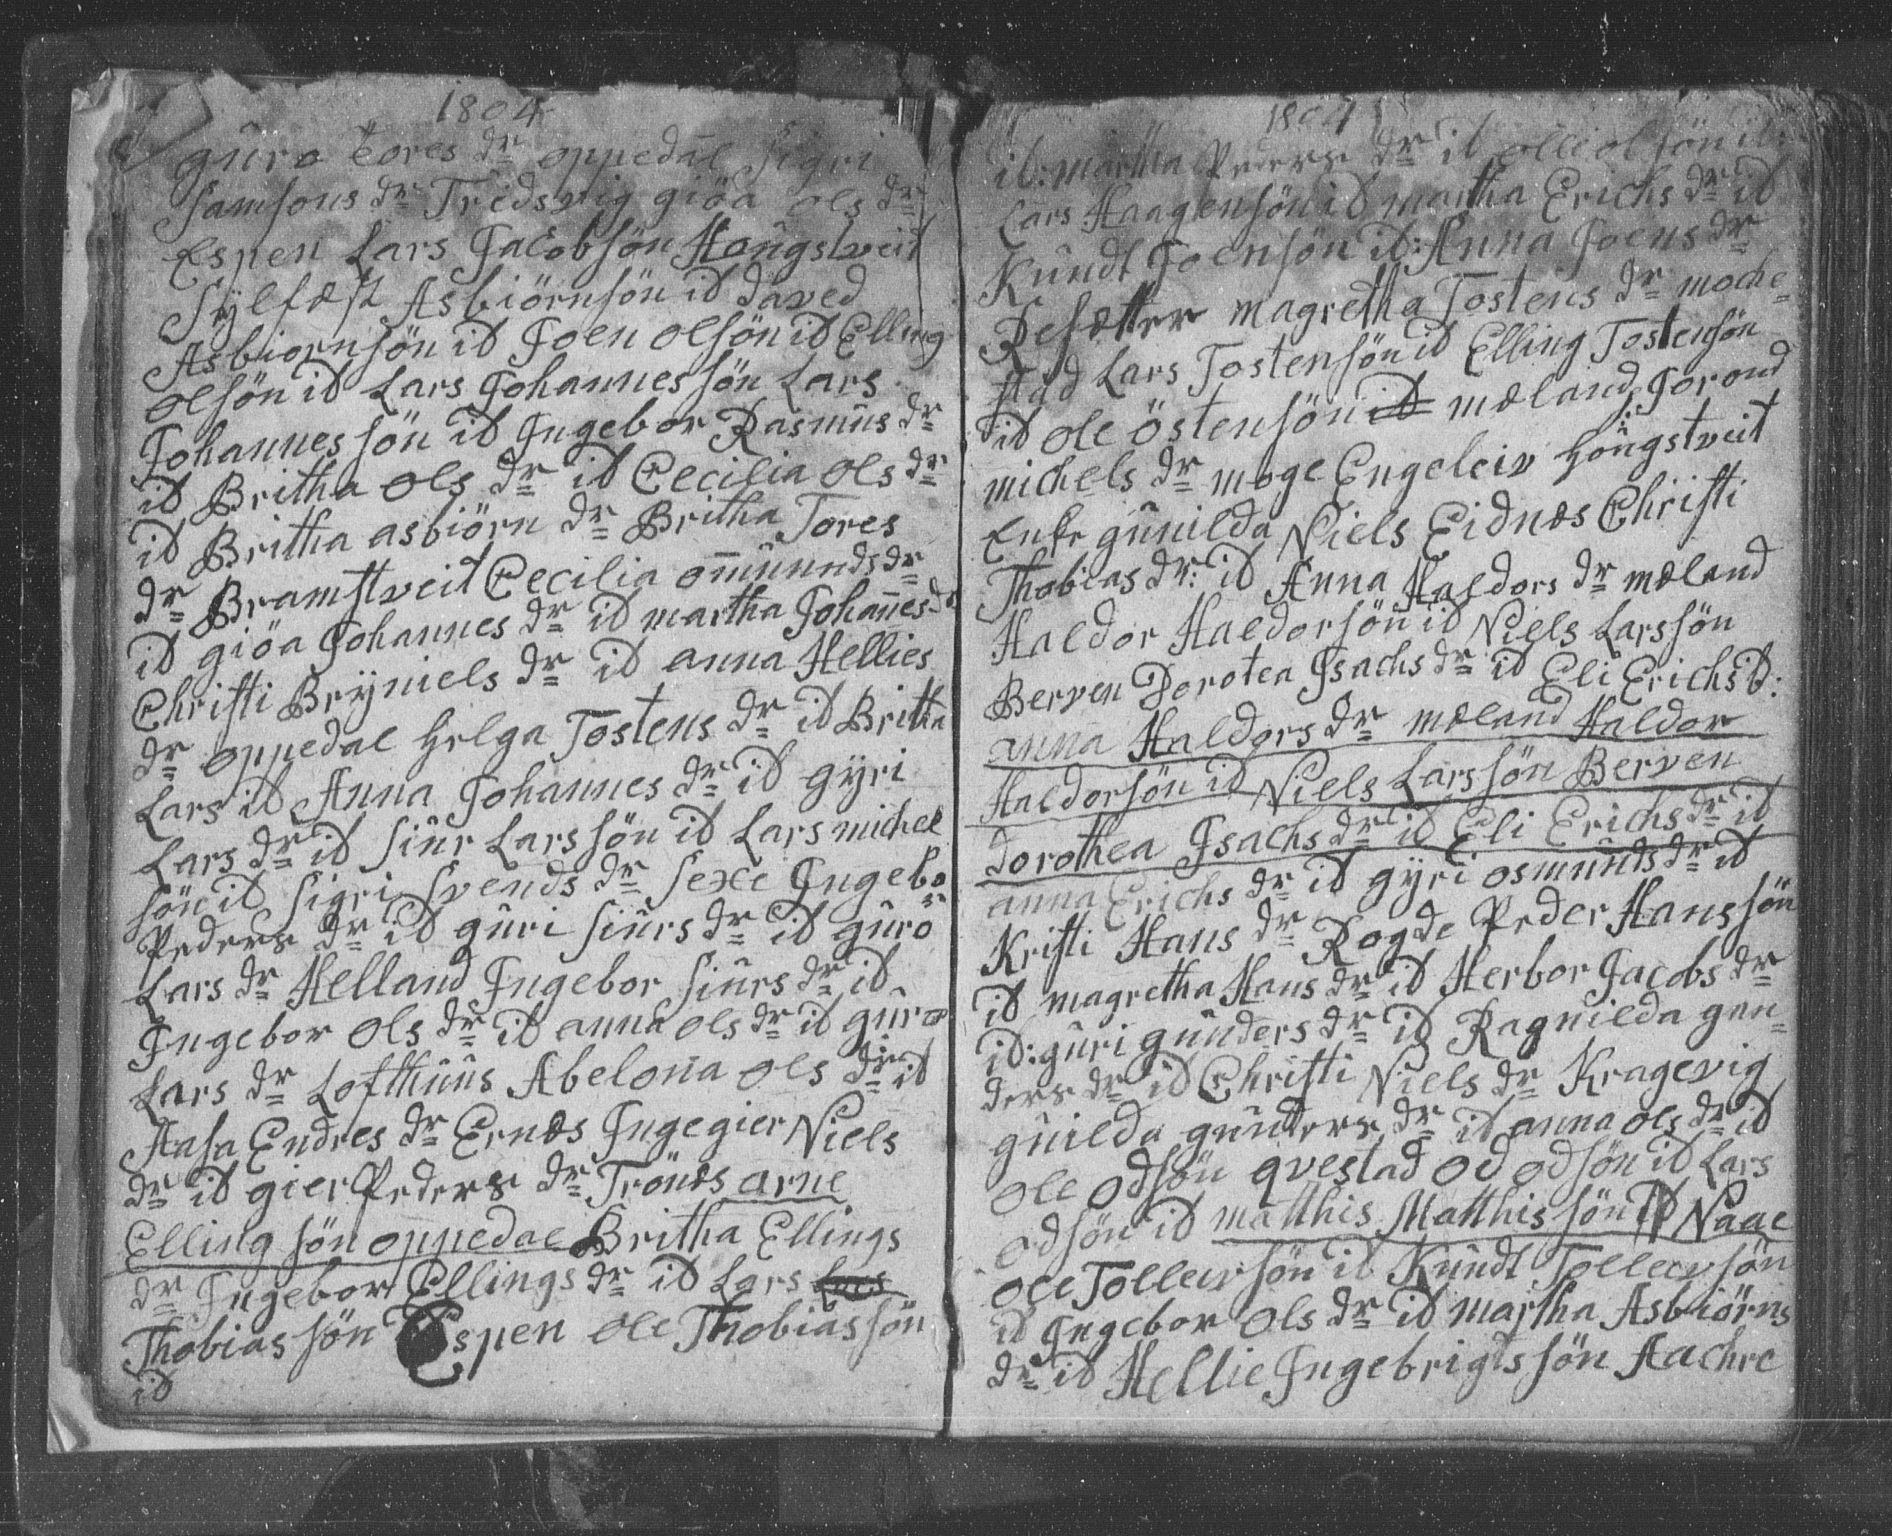 1804
guro Tores dr oppedal Sigri
Samsons dr Tredsvig giöa ols dr
Espen Lars Jacobsön Hougstveit
Sylfæst Asbiörnsön id daved
Asbiornsön id Joen olsön id Elling
olsön id Lars Johannessön Lars
Johannessön id Ingebor Rasmus dr
id Britha ols dr id Cecilia ols dr
id Britha asbiörn dr Britha Tores
dr Bramstveit Cecilia omunds dr
id giöa Johannes dr id martha Johanes dr
Christi Brÿniels dr id anna Hellies
dr oppedal helga Tostens dr id Britha
Lars id Anna Johannes dr id gÿri
Lars dr id Siur Larssön id Lars michel
sön id Sigri Svends dr Sexe Ingebo
Peders dr id guri Siurs dr id guro
Lars dr Helland Ingebor Siurs dr id
Ingebor ols dr id anna ols dr id guro
Lars dr Lofthuus Abelona ols dr id
Aasa Endres dr Ernæs Ingegier Niels
dr id gier Peders dr Trönæs arne
Ellingsön oppedal Britha Ellings
dr Ingebor Ellings dr id Lars Lars
Thobiassön Espen ole Thobiassön
id
1804
id: martha Peders dr id olle olsön id:
Lars Haagensön id martha Erichs dr id
Kundt Joensön id: Anna Joens dr
Resætter magretha Tostens dr moche=
stad Lars Tostensön id Elling Tostensön
id ole östensön id mæland Jorond
michels dr moge Engeleiv hougstveit
Enke gunilda Niels Eidnæs Christi
Thobias dr: id Anna Haldors dr mæland
Haldor Haldorsön id Niels Larssön
Berven Dorotea Isachs dr id Eli Erichs id:
anna Haldors dr mæland Haldor
Haldorsön id Niels Larssön Berven
dorothea Isachs dr id Eli Erichs dr id
anna Erichs dr id gÿri osmunds dr id
Kristi Hans dr Rogde Peder Hanssön
id magretha Hans dr id Herbor Jacobs dr
id: guri gunders dr id Ragnilda gun=
ders dr id Christi Niels dr Kragevig
guilda gunders dr id anna ols dr id
ole odsön qvestad od odsön id Lars
odsön id matthis Matthissön id Naae
ole Tolleivsön id Kundt Tolleivsön
id Ingebor ols dr id martha Asbiörns
dr id Hellie Ingebrigtssön Aachre